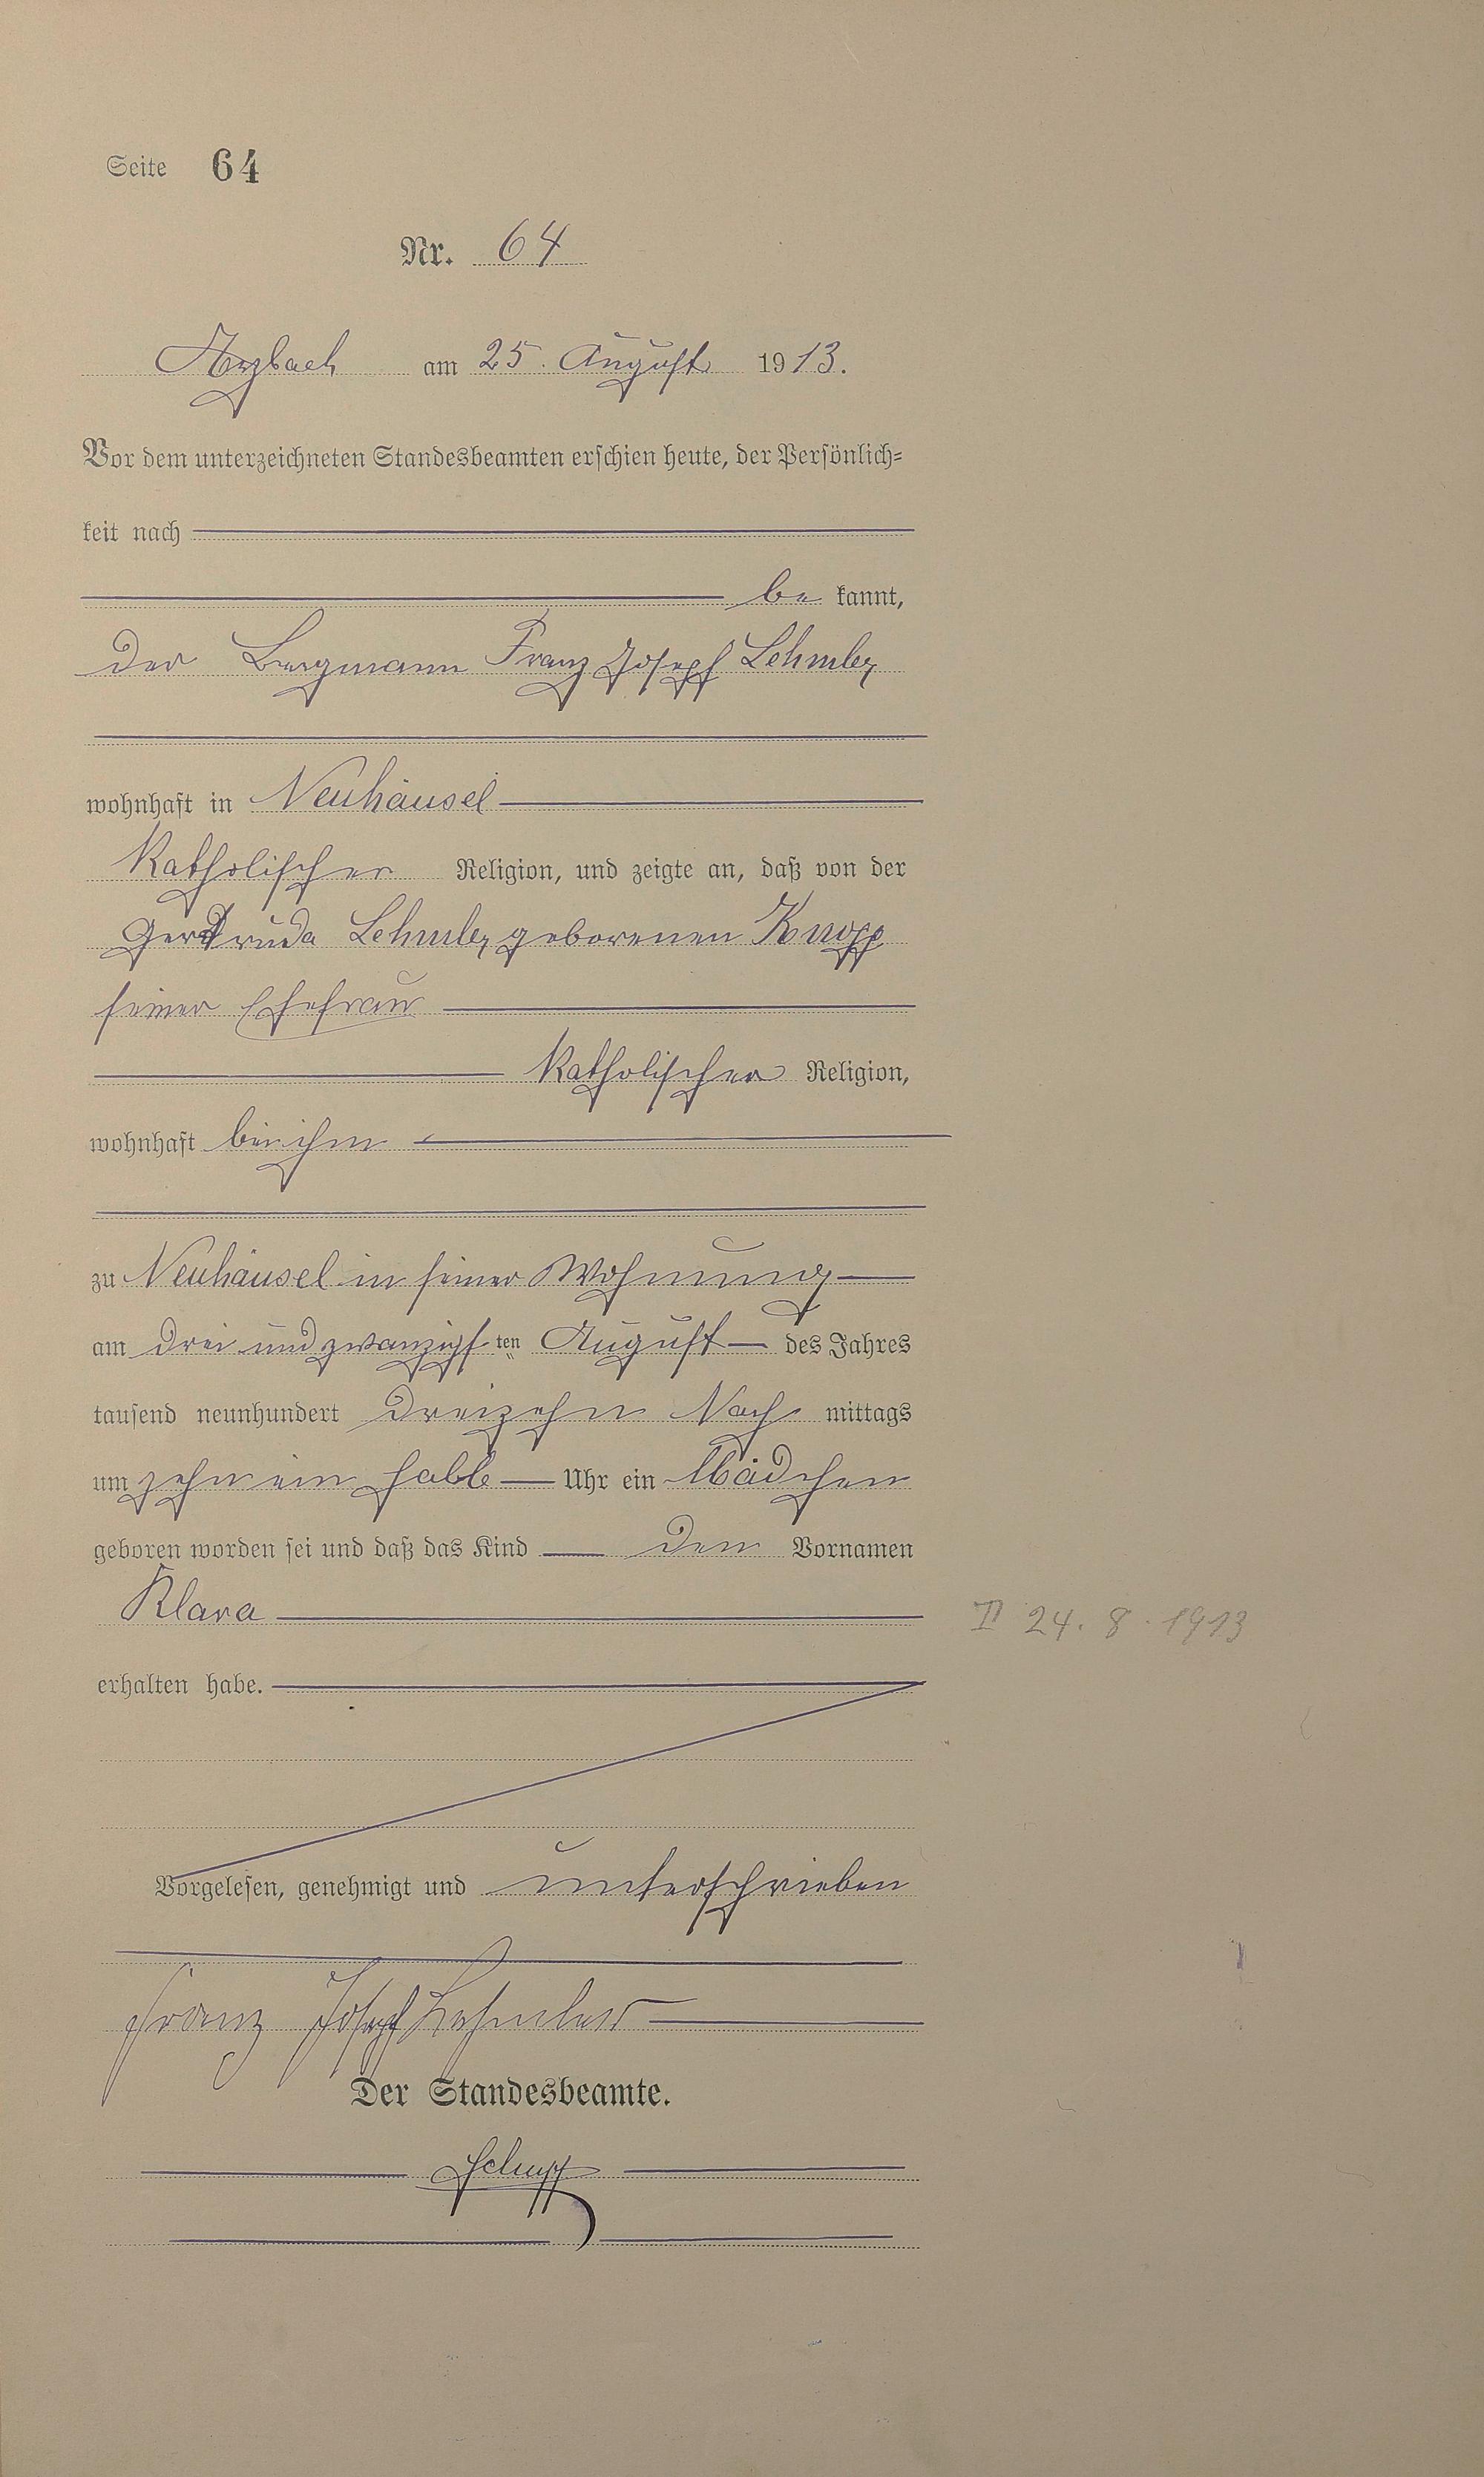 Seite 64
Nr. 64
Arzbach am 25. August 1913.
Vor dem unterzeichneten Standesbeamten erschien heute, der Persönlich=
keit nach
be kannt,
der Bergmann Franz Josef Lehmler
wohnhaft in Neuhäusel
Katholischer Religion, und zeigte an, daß von der
Gertruda Lehmler geborenen Knopp
seiner Ehefrau
Katholischer Religion,
wohnhaft bei ihm
zu Neuhäusel in seiner Wohnung
am drei und zwanzigs ten August des Jahres
tausend neunhundert dreizehn Nach mittags
um zehn ein halb Uhr ein Mädchen
geboren worden sei und daß das Kind den Vornamen
Klara II 24. 8. 1913
erhalten habe.
Vorgelesen, genehmigt und unterschrieben
Franz Josef Lehmler
Der Standesbeamte.